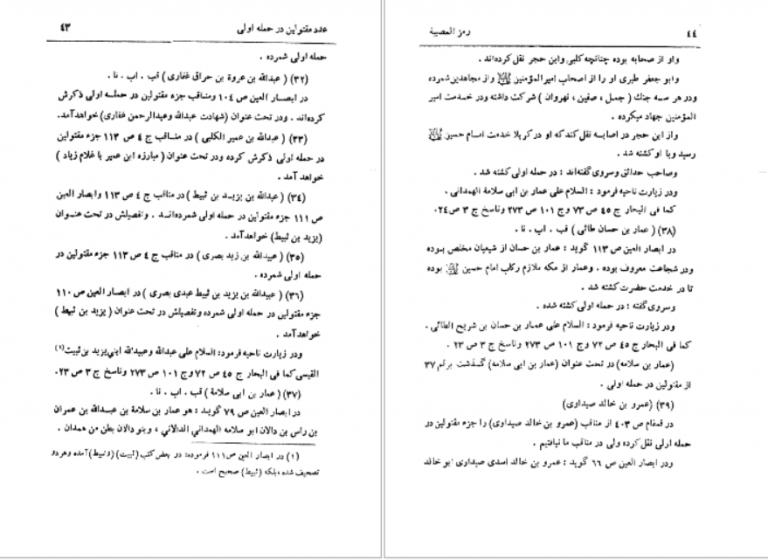 عدد مقتولین در حمله اولی ۴۳
حمله اولی شمرده .
(۳۲) ( عبدالله بن عروة بن حراق غفاری ) قب . اب . نا .
در ابصار العین ص ۱۰۴ ومناقب جزء مقتولین در حمله اولی ذکرش
کرده‌اند . ودر تحت عنوان (شهادت عبدالله وعبدالرحمن غفاری) خواهدآمد.
(۳۳) ( عبدالله بن عمیر الکلبی ) در مناقب ج ۴ ص ۱۱۳ جزء مقتولین
در حمله اولی ذکرش کرده ودر تحت عنوان ( مبارزه ابن عمیر با غلام زیاد )
خواهد آمد .
(۳۴) ( عبدالله بن یزید بن ثبیط ) در مناقب ج ۴ ص ۱۱۳ وابصار العین
ص ۱۱۱ جزء مقتولین در حمله اولی شمرده‌اند . وتفصیلش در تحت عنوان
(یزید بن ثبیط) خواهدآمد .
(۳۵) ( عبیدالله بن زید بصری ) در مناقب ج ۴ ص ۱۱۳ جزء مقتولین در
حمله اولی شمرده .
(۳۶) ( عبیدالله بن یزید بن ثبیط عبدی بصری ) در ابصار العین ص ۱۱۰
جزء مقتولین در حمله اولی شمرده وتفصیلش در تحت عنوان ( یزید بن ثبیط )
خواهدآمد .
ودر زیارت ناحیه فرمود: السلام علی عبدالله وعبیدالله ابنی یزید بن ثبیت(۱)
القیسی کما فی البحار ج ۴۵ ص ۷۲ وج ۱۰۱ ص ۲۷۳ وناسخ ج ۳ ص ۲۳.
(۳۷) ( عمار بن ابی سلامة ) قب . اب . نا .
در ابصار العین ص ۷۹ گوید : هو عمار بن سلامة بن عبدالله بن عمران
بن راس بن دالان ابو سلامه الهمدانی الدالانی ، وبنو دالان بطن من همدان .
(۱) در ابصار العین ص۱۱۱ فرموده: در بعض کتب (ثبیت) (ونبیط) آمده وهردو
تصحیف شده ، بلکه (ثبیط) صحیح است .
۴۴ رمز المصیبة
واو از صحابه بوده چنانچه کلبی وابن حجر نقل کرده‌اند .
وابو جعفر طبری او را از اصحاب امیر المؤمنین واز مجاهدین شمرده
ودر هر سه جنك ( جمل ، صفین ، نهروان ) شرکت داشته ودر خدمت امیر
المؤمنین جهاد میکرده .
واز ابن حجر در اصابه نقل کند که او در کربلا خدمت امام حسین
رسید وبا او کشته شد .
وصاحب حدائق وسروی گفته‌اند : در حمله اولی کشته شد .
ودر زیارت ناحیه فرمود : السلام علی عمار بن ابی سلامة الهمدانی .
کما فی البحار ج ۴۵ ص ۷۳ وج ۱۰۱ ص ۲۷۳ وناسخ ج ۳ ص ۲۴.
(۳۸) ( عمار بن حسان طائی ) قب . اب . نا .
در ابصار العین ص ۱۱۳ گوید : عمار بن حسان از شیعیان مخلص بوده
ودر شجاعت معروف بوده . وعمار از مکه ملازم رکاب امام حسین بوده
تا در خدمت حضرت کشته شد .
وسروی گفته : در حمله اولی کشته شده .
ودر زیارت ناحیه فرمود : السلام علی عمار بن حسان بن شریح الطائی .
کما فی البحار ج ۴۵ ص ۷۲ وج ۱۰۱ ص ۲۷۳ وناسخ ج ۳ ص ۲۳ .
(عمار بن سلامه) در تحت عنوان (عمار بن ابی سلامه) گذشت برقم ۳۷
از مقتولین در حمله اولی .
(۳۹) (عمرو بن خالد صیداوی)
در قمقام ص ۴۰۳ از مناقب (عمرو بن خالد صیداوی) را جزء مقتولین در
حمله اولی نقل کرده ولی در مناقب ما نیافتیم .
ودر ابصار العین ص ۶۶ گوید : عمرو بن خالد اسدی صیداوی ابو خالد